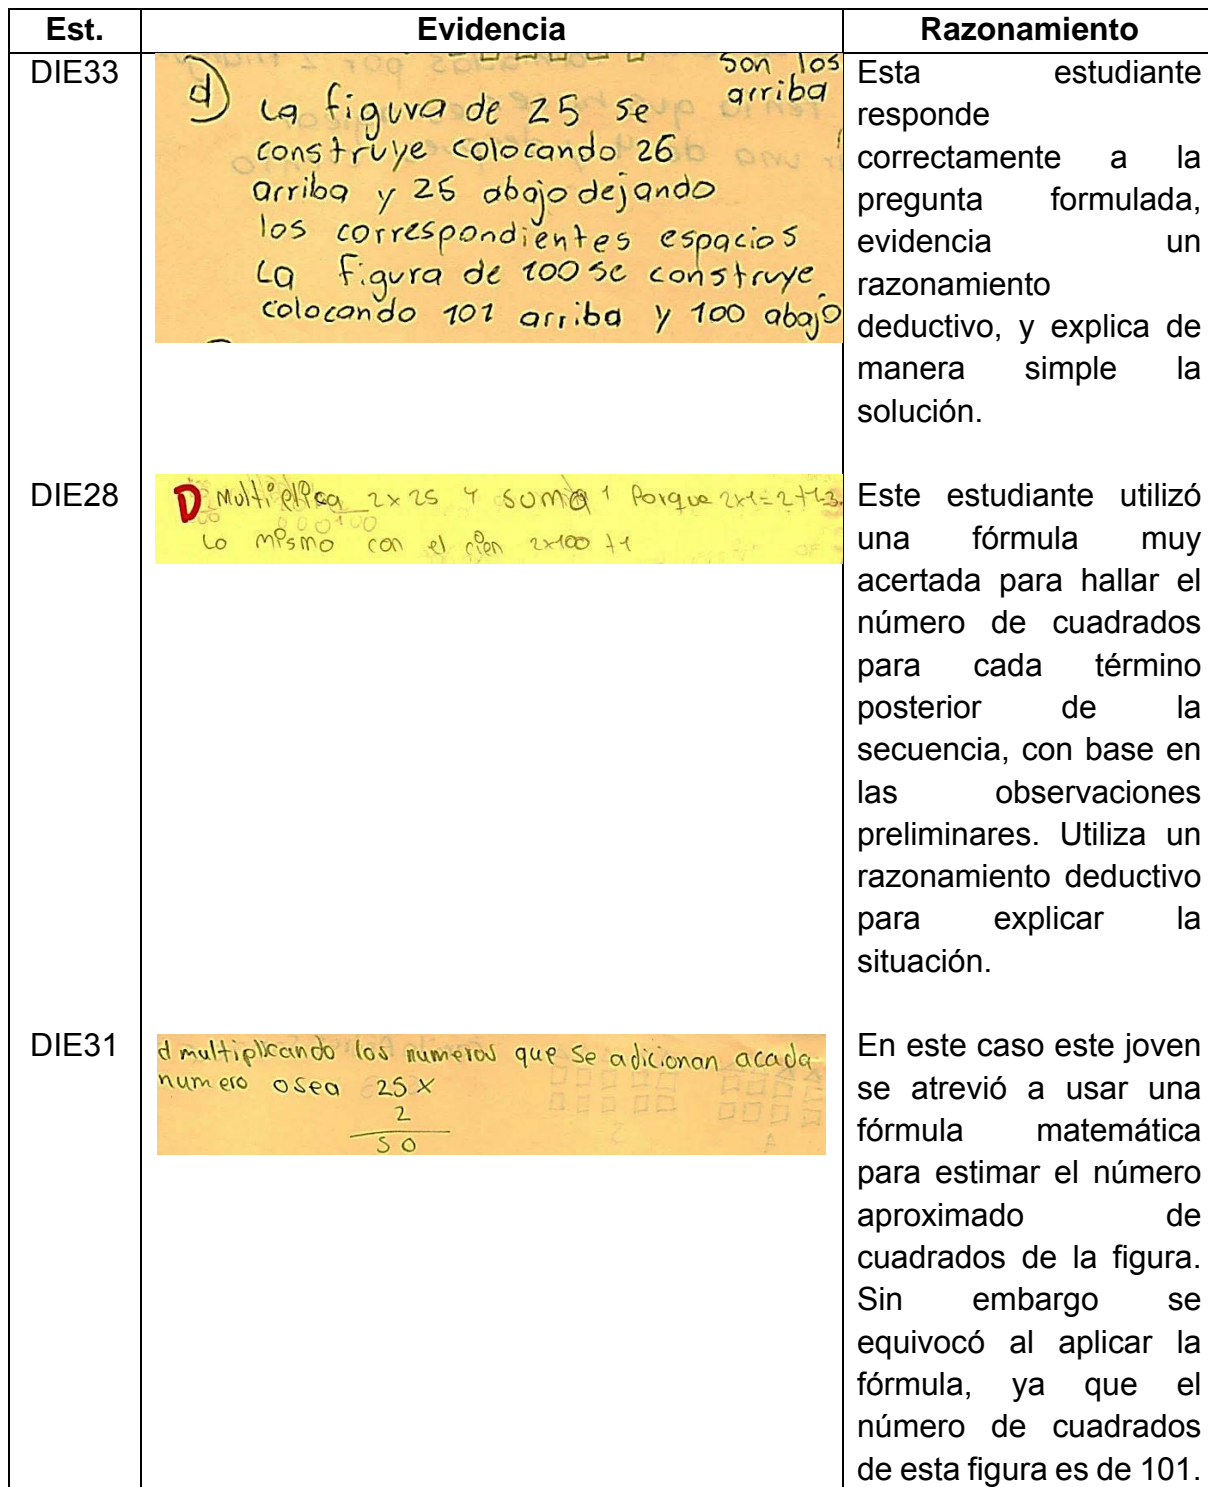 Est. Evidencia Razonamiento
DIE33
son los
arriba
d) La figura de 25 se
construye colocando 26
arriba y 25 abajo dejando
los correspondientes espacios
La figura de 100 se construye
colocando 101 arriba y 100 abajo
Esta estudiante
responde
correctamente a la
pregunta formulada,
evidencia un
razonamiento
deductivo, y explica de
manera simple la
solución.
DIE28
D Multiplica 2x25 y suma 1 Porque 2x1=2+1=3.
Lo mismo con el cien 2x100 +1
Este estudiante utilizó
una fórmula muy
acertada para hallar el
número de cuadrados
para cada término
posterior de la
secuencia, con base en
las observaciones
preliminares. Utiliza un
razonamiento deductivo
para explicar la
situación.
DIE31
d multiplicando los numeros que se adicionan acada
numero osea 25 x
2
50
En este caso este joven
se atrevió a usar una
fórmula matemática
para estimar el número
aproximado de
cuadrados de la figura.
Sin embargo se
equivocó al aplicar la
fórmula, ya que el
número de cuadrados
de esta figura es de 101.